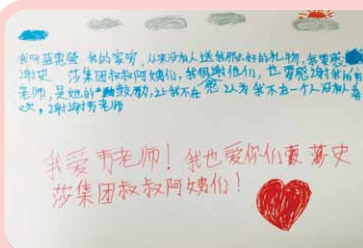 我叫蓝惠爱 我的家穷,从来没有人送我那么好的礼物,我要感
谢史 莎集团叔叔阿姨们,我很谢他们,也要感谢我们
老师,是她的鼓励,让我不在 认为我不在一个人没有人喜
欢。谢谢韦老师
我爱韦老师!我也爱你们 蒂史
莎集团叔叔阿姨们!